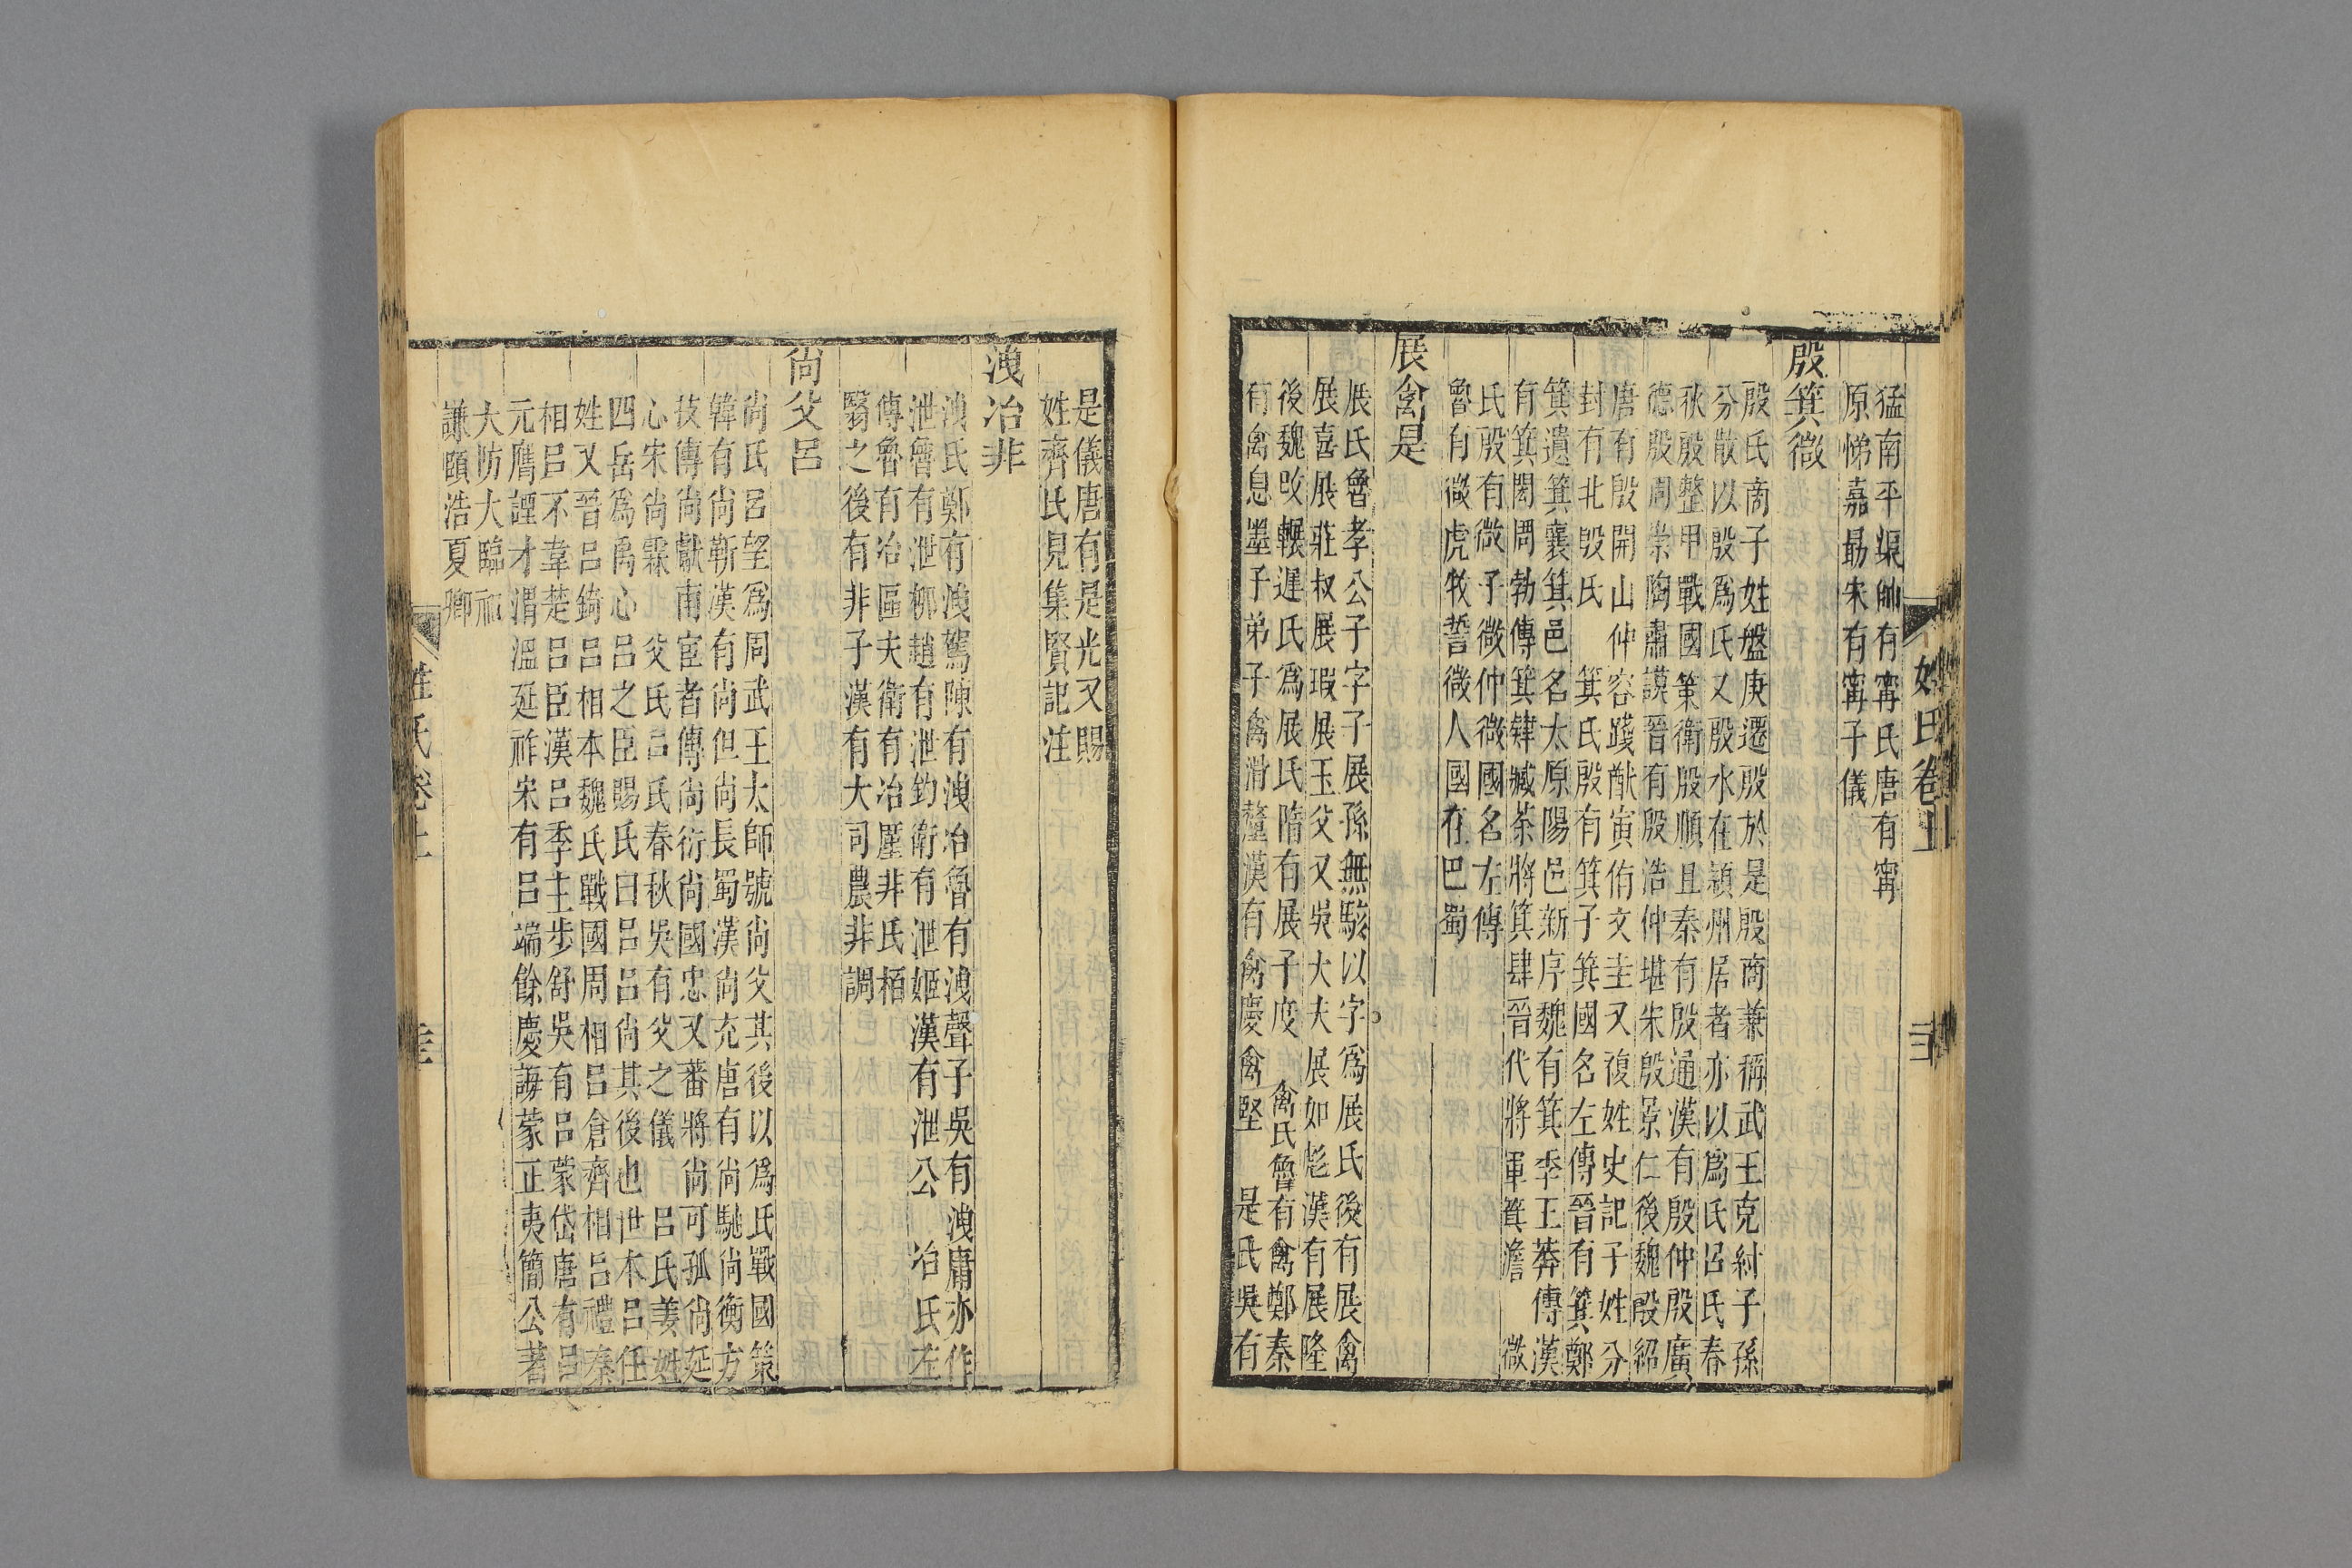 姓氏卷上
猛南平渠帥有甯氏唐有甯
原悌嘉勗宋有甯子儀
殷箕微
殷氏商子姓盤庚遷殷於是殷商兼稱武王克紂子孫
分散以殷爲氏又殷水在潁州居者亦以爲氏呂氏春
秋殷整甲戰國策衛殷順且秦有殷通漢有殷仲殷廣
德殷周崇陶肅謨晉有殷浩仲堪朱殷景仁後魏殷紹
唐有殷開山仲容踐猷寅侑文圭又複姓史記子姓分
封有北殷氏 箕氏殷有箕子箕國名左傳晉有箕鄭
箕遺箕襄箕邑名太原陽邑新序魏有箕季王莽傳漢
有箕閎周勃傳箕肄臧荼將箕肆晉代將軍箕澹 微
氏殷有微子微仲微國名左傳
魯有微虎牧誓微人國在巴蜀
展禽是
展氏魯孝公子字子展孫無駭以字爲展氏後有展禽
展喜展莊叔展瑕展玉父又吳大夫展如彪漢有展隆
後魏㕮輾遲氏爲展氏隋有展子虔 禽氏魯有禽鄭秦
有禽息墨子弟子禽滑釐漢有禽慶禽堅 是氏吳有
是儀唐有是光又賜
姓齊氏見集賢記注
洩冶非
洩氏鄭有洩駕陳有洩冶魯有洩聲子吳有洩庸亦作
泄魯有泄柳趙有泄鈞衛有泄姬漢有泄公 冶氏左
傳魯有冶區夫衛有冶廑非氏栢
翳之後有非子漢有大司農非調
尚父呂
尚氏呂望爲周武王太師號尚父其後以爲氏戰國策
韓有尚靳漢有尚但尚長蜀漢尚充唐有尚馳尚衡方
技傳尚獻甫宦者傳尚衍尚國忠又蕃將尚可孤尚延
心宋尚霖 父氏呂氏春秋吳有父之儀 呂氏姜姓
四岳爲禹心呂之臣賜氏曰呂呂尚其後也世本呂任
姓又晉呂錡呂相本魏氏戰國周相呂倉齊相呂禮秦
相呂不韋楚呂臣漢呂季主步舒吳有呂蒙岱唐有呂
元膺諲才渭溫延祚宋有呂端餘慶誨蒙正夷簡公著
大防大臨祉
謙頤浩夏卿
姓氏卷上